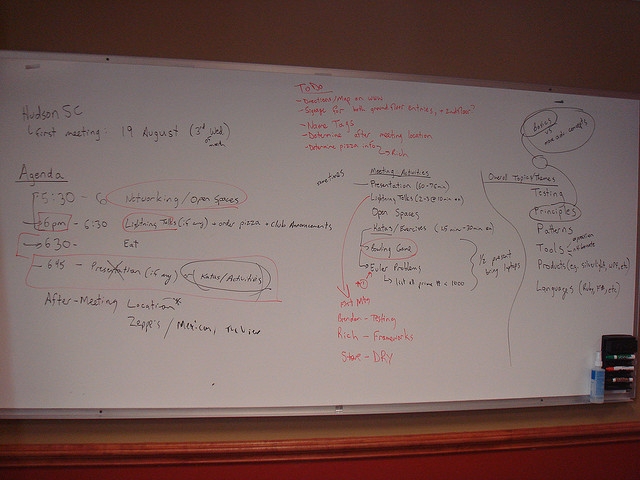 Hudson SC
First meeting: 19 August (3rd Wed. of month)
Agenda
5:30 - 6 Networking/Open Spaces
6pm - 6:30 Lightning Talks (if any) + order pizza + Club Announcements
6:30 - Eat
6:45 - Presentation (if any) Katas/Activities
After-Meeting Location
Zeppe's / Mexican,
ToDo
- Directions/Map on
- Signage for both ground floor entries, + 2nd floor?
- Name Tags
- Determine after meeting location
- Determine pizza info
Rich
Meeting Activities
sometimes
Presentation (60-75min)
Lightning Talks (2-3 @ 10min ea)
Open Spaces
Katas/Exercises (15 min - 30min ea)
Bowling Game
Euler Problems
list of prime #s < 1000
1/2 present
bring laptops
First Mtg
Brandon - Testing
Rich - Frameworks
Steve - DRY
Basics
vs
more adv concepts
Overall Topics/Themes
Testing
Principles
Patterns
Tools
Products (eg. Silverlight, WPF, etc)
Languages (Ruby, F#, etc)